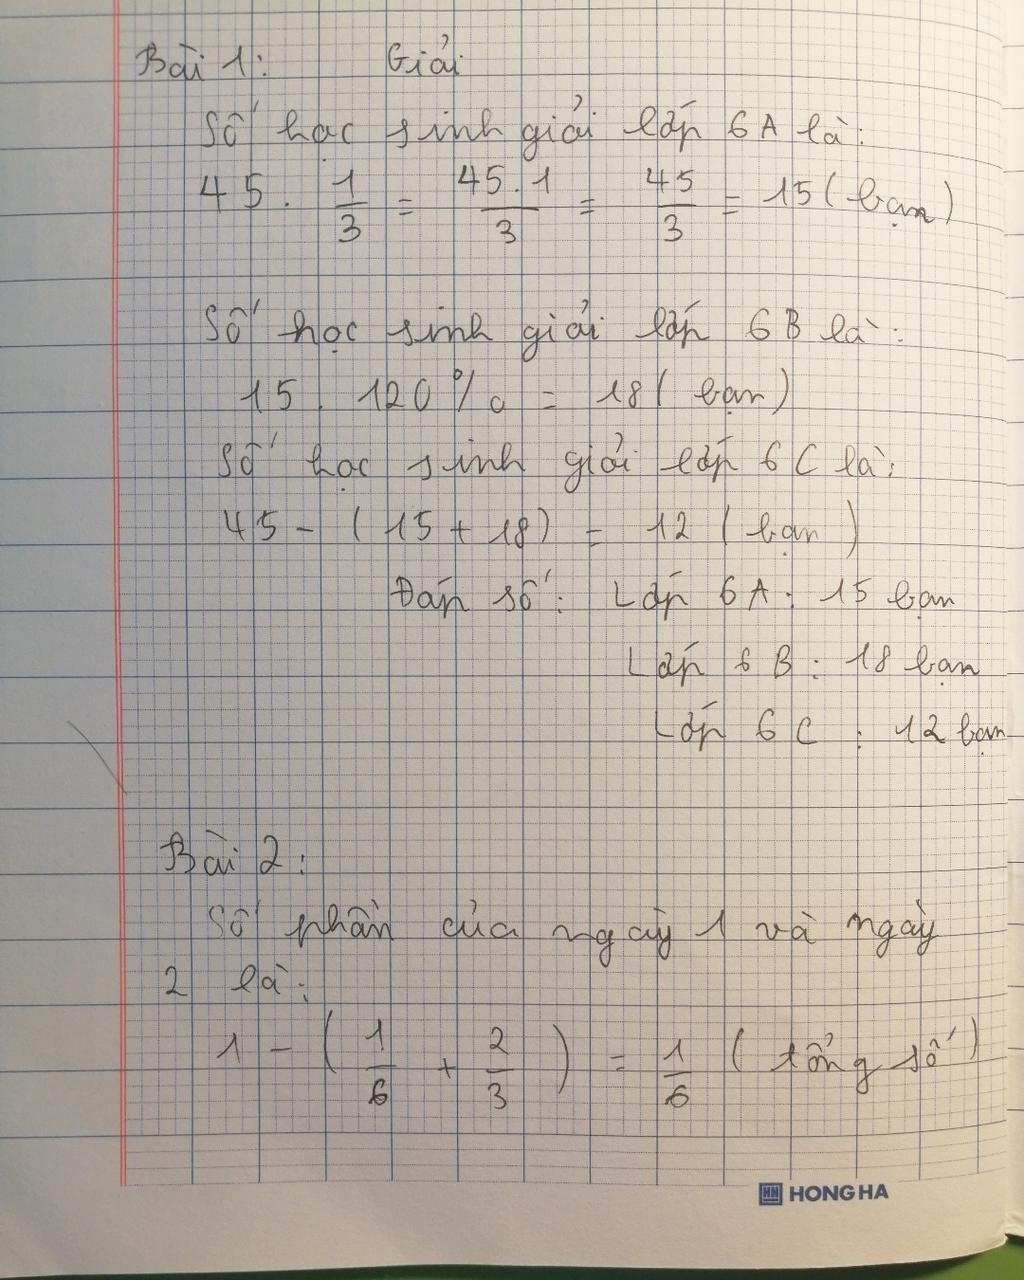 Bài 1: Giải
Số học sinh giỏi lớp 6A là:
45 . 1/3 = 45.1/3 = 45/3 = 15 (bạn)
Số học sinh giỏi lớp 6B là:
15 . 120% = 18 (bạn)
Số học sinh giỏi lớp 6C là:
45 - (15 + 18) = 12 (bạn)
Đáp số: Lớp 6A: 15 bạn
Lớp 6B: 18 bạn
Lớp 6C : 12 bạn
Bài 2:
Số phần của ngày 1 và ngày
2 là:
1 - (1/6 + 2/3) = 1/6 (tổng số)
HONG HA